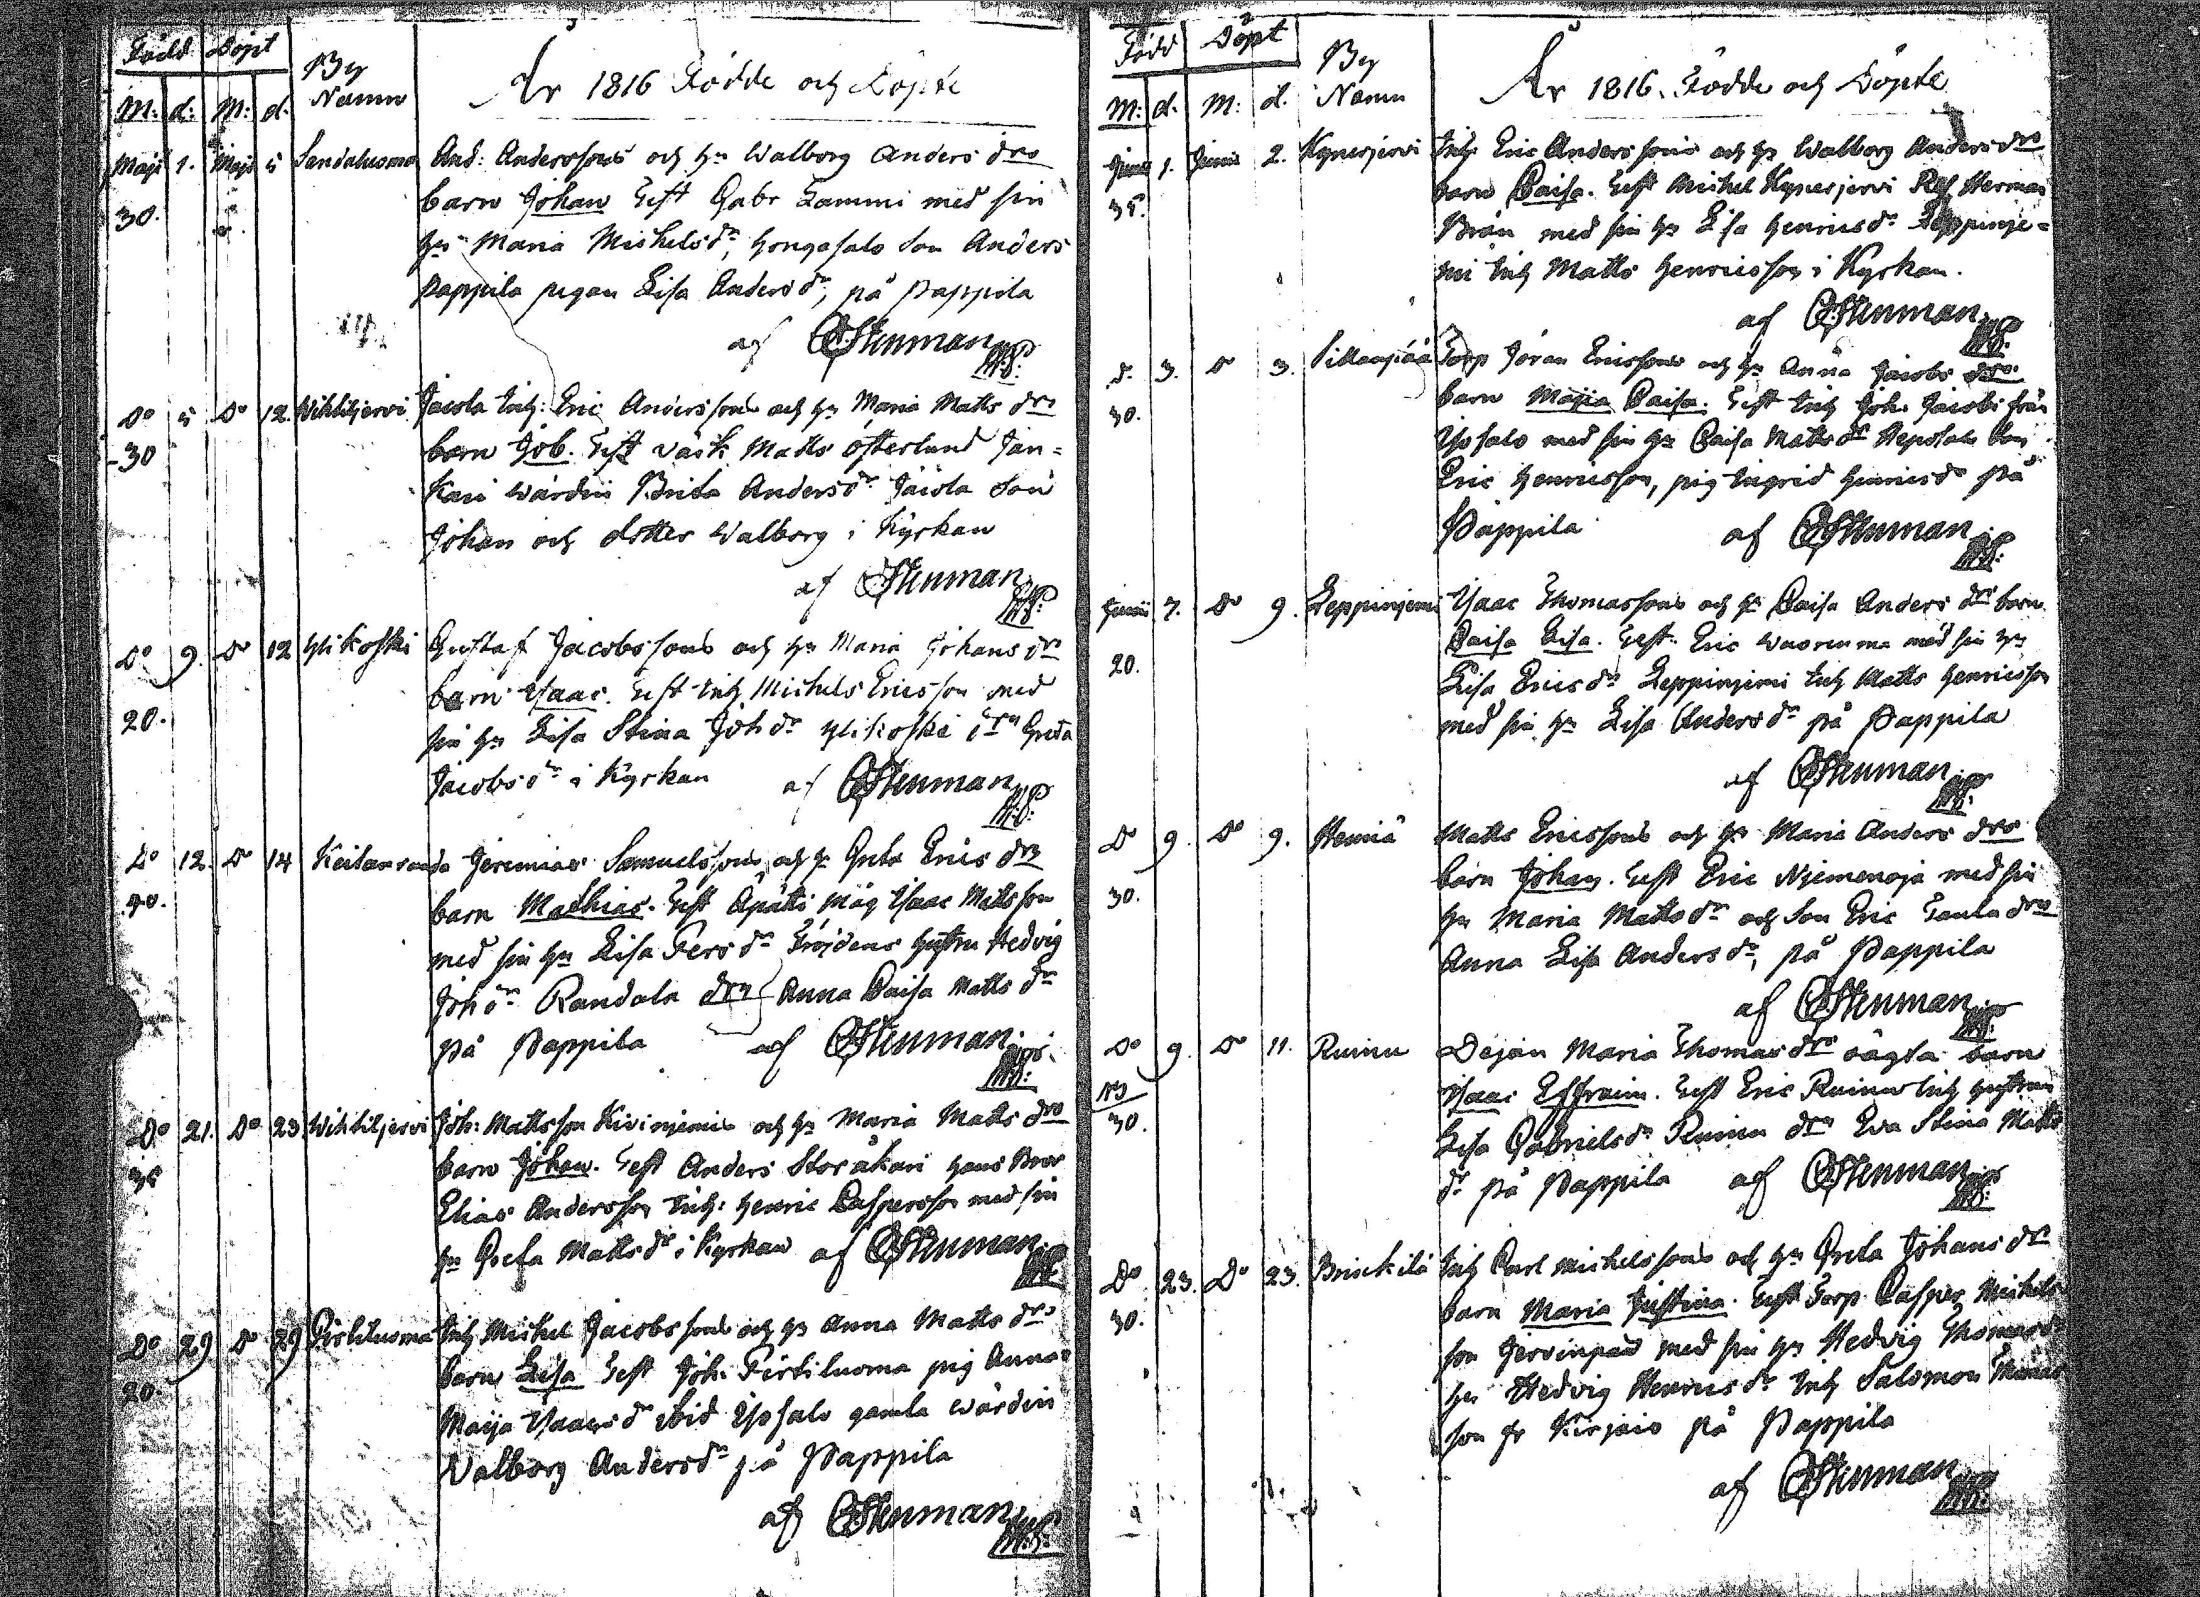 Född Döpt By Namn År 1816 Födde och Döpte
M: d: M: d.
Maji 1. Maji 5 Sandaluoma And: Anderssons och h:u Walborg Anders dr:s
30. barn Johan Test Gabr Lammi med sin
h:u Maria Michelsd:r, Hongosalo Son Anders
Pappila pigan Lisa Andersd:r, på Pappila
af CStenman
D:o 5 D:o 12. Wihtiljervi Jacola Inh: Eric Anderssons och h:u Maria Matts dr:s
30 barn Job. Test Matts Österlund Jan=
kari wärdin Brita Andersd:r Jacola Son
Johan och dotter Walborg i Kyrkan
af CStenman
D:o 9. D:o 12 Ylikoski Gustaf Jacobssons och h:u Maria Johans dr:s
20. barn Isaac. Test Inh Michels Ericsson med
sin h:u Lisa Stina Joh d:r Ylikoski d:rn Greta
Jacobsd:r i Kyrkan af CStenman
D:o 12. D:o 14 Keitaanranda Jeremias Samuelssons och h:u Greta Erics dr:s
40. barn Mathias. Test måg Isaac Mattsson
med sin h:u Lisa hustru Hedvig
Joh d:r Randala d:rn Anna Caisa Matts d:r
på Pappila af CStenman
D:o 21. D:o 23 Wihtiljervi Joh: Mattsson Kivinjemis och h:u Maria Matts dr:s
35 barn Johan. Test Anders Storåkari hans Bror
Elias Andersson Inh: Henric Caspersson med sin
h:u Greta Mattsd:r i Kyrkan af CStenman
D:o 29 D:o 29 Pirtiluoma Inh Michel Jacobssons och h:u Anna Matts dr:s
20. barn Lisa Test Joh: Pirtiluoma pig Anna
Maija Isaacsd:r ibid Yosalo gamla wärdin
Valborg Andersd:r på Pappila
af CStenman
Född Döpt By Namn År 1816. Födde och Döpte
M: d. M: d.
Junii 1. Junii 2. Kynesjervi Inh Eric Anderssons och h:u Walborg Anders dr:s
35. barn Caisa. Test Michel Kynesjervi Herman
Brån med sin h:u Lisa Henricsd:r Leppinje=
mi Inh Matts Henricsson i Kyrkan.
af CStenman
D:o 3. D:o 3. Sillanpää Torp Jöran Ericssons och h:u Anna Jacobs dr:s
30. barn Majia Caisa. Test Inh Joh: Jacobs från
Yosalo med sin h:u Caisa Mattsd:r Heposalo Son
Eric Henricsson, pig Ingrid Henricsd:r På
Pappila af CStenman
Junii 7. D:o 9. Leppinjemi Isaac Thomassons och h:u Caisa Anders dr:s barn
20. Caisa Lisa. Test. Eric Wuorenma med sin h:u
Lisa Ericsd:r Leppinjemi Inh Matts Henricsson
med sin h:u Lisa Andersd:r på Pappila
af CStenman
D:o 9. D:o 9. Hemiä Matts Ericssons och h:u Maria Anders dr:s
30. barn Johan. Test Eric Njemenoja med sin
h:u Maria Mattsd:r och Son Eric
Anna Lisa Andersd:r, på Pappila
af CStenman
D:o 9. D:o 11. Ruinu Dejan Maria Thomasdr:s oägta barn
30. Isaac Effraim. Test Eric Ruinu Inh hustrun
Lisa Gabrielsd:r Ruinu d:rn Eva Stina Matts
d:r på Pappila af CStenman
D:o 23. D:o 23. Brinckilä Inh Carl Michelssons och h:u Greta Johans dr:s
30. barn Maria Justina. Test Torp Casper Michels
son Jervinpää med sin h:u Hedvig Thomasd:r
h:u Hedvig Henricsd:r Inh Salomon Thomas
son fr Kirjais på Pappila
af CStenman